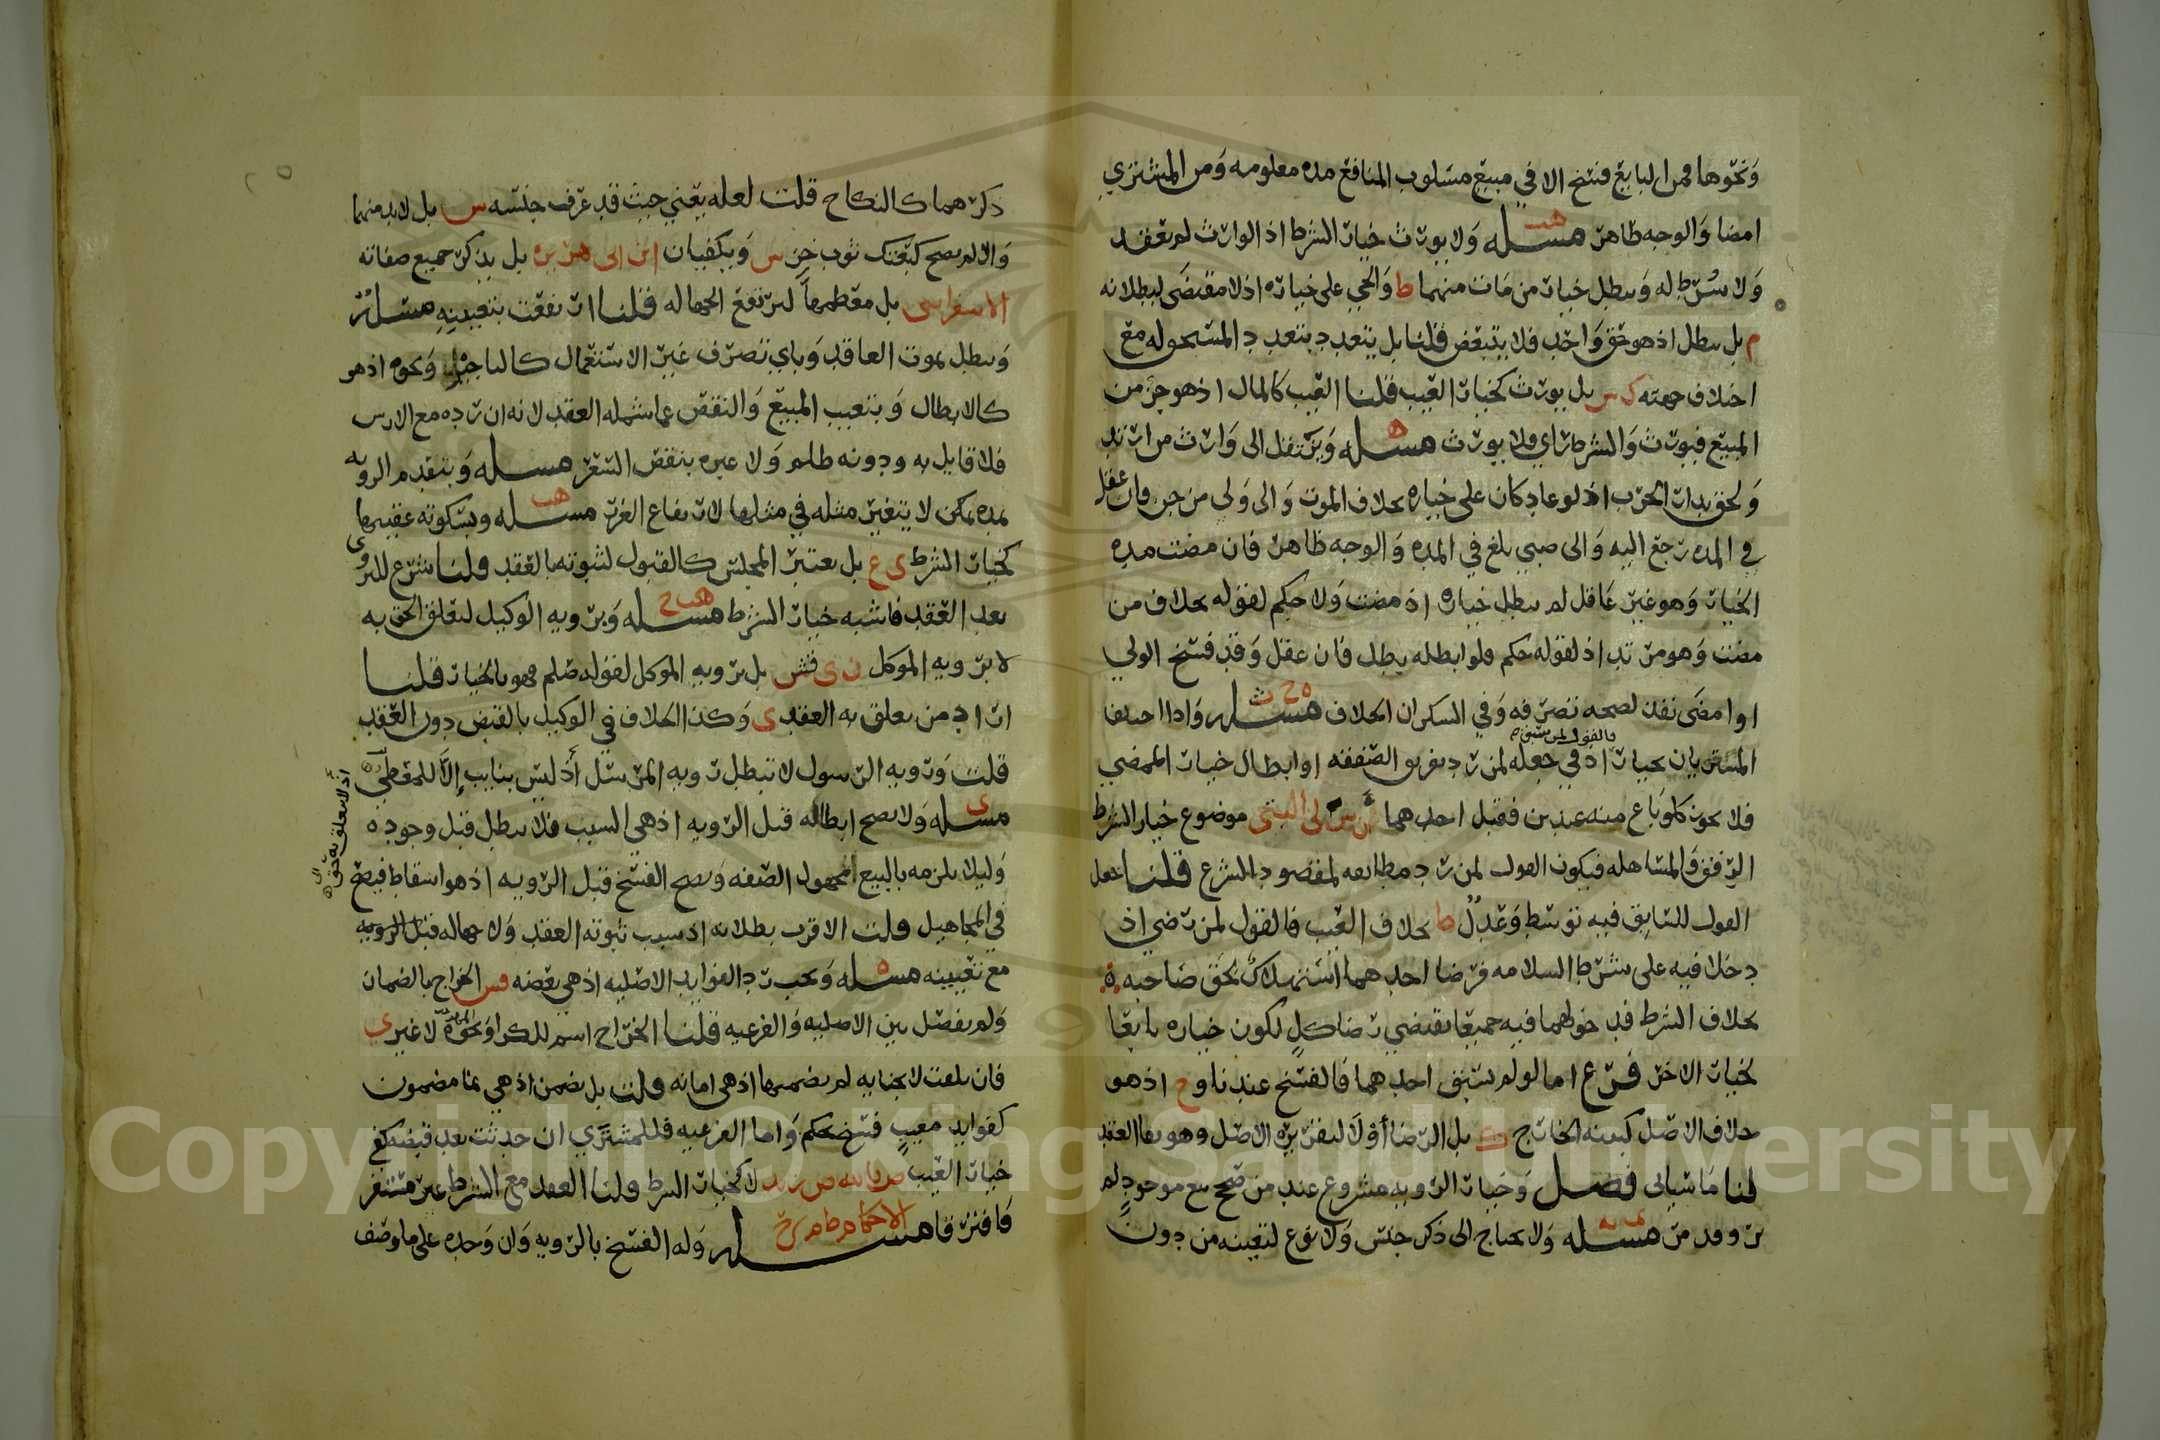 ونحوها فمن البايع فسخ الا في مبيع مسلوب المنافع مده معلومه ومن المشتري
امضا والوجه ظاهر مسله ولا يورث خيار الشرط اذ الوارث لم يعقد
ولا شرط له ويبطل خيار من مات منهما ط والحي على خياره اذ لا مقتضى لبطلانه
م بل يبطل اذ هو حق واحد فلا يتبعض قلنا بل يتعدد بتعدد المستحق له مع
اختلاف جهته ك س بل يورث كخيار العيب قلنا العيب كالمال اذ هو جز من
المبيع فيورث والشرط راي فلا يورث مسله وينتقل الى وارث من ارتد
ولحق بدار الحرب اذ لو عاد كان على خياره بخلاف الموت والى ولي من جن فان عقل
في المده رجع اليه والى صبي بلغ في المده والوجه ظاهر فان مضت مده
الخيار وهو غير عاقل لم يبطل خياره اذ مضت ولا حكم لقوله بخلاف من
مضت وهو مرتد اذ لقوله حكم فلو ابطله بطل فان عقل وقد فسخ الولي
او امضى نفذ لصحه تصرفه وفي السكران الخلاف مسله واذا اختلفا
المشتريان بخيار فالقول لمن سبق اذ في جعله لمن رد تفريق الصفقه او ابطال خيار الممضي
فلا يجوز كلو باع منه عبدين فقبل احدهما موضوع خيار الشرط
الرفق والمساهله فيكون القول لمن رد مطابقه لمقصود الشرع قلنا جعل
القول للسابق فيه توسط وعدل ط بخلاف العيب فالقول لمن رضي اذ
دخلا فيه على شرط السلامه فرضا احدهما استهلاك لحق صاحبه
بخلاف الشرط فدخولهما فيه جميعا يقتضي رضا كل لكون خياره تابعا
لخيار الاخر فرع اما لو لم يسبق احدهما فالفسخ عندنا وح اذ هو
خلاف الاصل كبينه الخارج بل الرضا اولا لتقريره الاصل وهو بقا العقد
لنا ما سياتى فصل وخيار الرويه مشروع عند من صحح بيع موجود لم
ير وقد مر مسله ولا يحتاج الى ذكر جنس ولا نوع لتعينه من دون
ذكرهما كالنكاح قلت لعله يعني حيث قد عرف جنسه س بل لا بد منهما
والا لم يصح كبعتك ثوب خز س ويكفيان ابن ابى هريره بل يذكر جميع صفاته
الاسفراينى بل معظمها لترتفع الجهاله قلنا ارتفعت بتعيينه مسله
ويبطل بموت العاقد وباي تصرف غير الاستعمال كالتاجير ونحوه اذ هو
كالابطال وبتعيب المبيع والنقص عما شمله العقد لانه ان رده مع الارش
فلا قايل به ودونه ظلم ولا عبره بنقص السعر مسله وبتقدم الرويه
بمده يمكن لا يتغير مثله في مثلها لارتفاع الغرر مسله وبسكوته عقيبها
كخيار الشرط ى ع بل يعتبر المجلس كالقبول لثبوته بالعقد قلنا شرع للتروي
بعد العقد فاشبه خيار الشرط مسله وبرويه الوكيل لتعلق الحق به
لا برويه الموكل ن ى قش بل برويه الموكل لقوله صلعم فهو بالخيار قلنا
اراد من تعلق به العقد ى وكذا الخلاف في الوكيل بالقبض دون العقد
قلت ورويه الرسول لا تبطل رويه المرسل اذ ليس بنايب
اذ لا تعلق به حق
مسله ولا يصح ابطاله قبل الرويه اذ هي السبب فلا يبطل قبل وجوده
وليلا يلزمه بالبيع المجهول الصفه ويصح الفسخ قبل الرويه اذ هو اسقاط فيصح
في المجاهيل قلت الاقرب بطلانه اذ سبب ثبوته العقد ولا جهاله قبل الرويه
مع تعيينه مسله ويجب رد الفوايد الاصليه اذ هي بعضه قس الخراج بالضمان
ولم يفصل بين الاصليه والفرعيه قلنا الخراج اسم للكرا ونحوه لا غير ى
فان تلفت لا بجنايه لم يضمنها اذ هي امانه قلت بل يضمن اذ هي نما مضمون
كفوايد معيب فسخ بحكم واما الفرعيه فللمشتري ان حدثت بعد قبضه كفي
خيار العيب لا كخيار الشرط قلنا العقد مع الشرط غير مستقر
فافترقا مسله وله الفسخ بالرويه وان وجده على ما وصف
Copyright © King Saud University